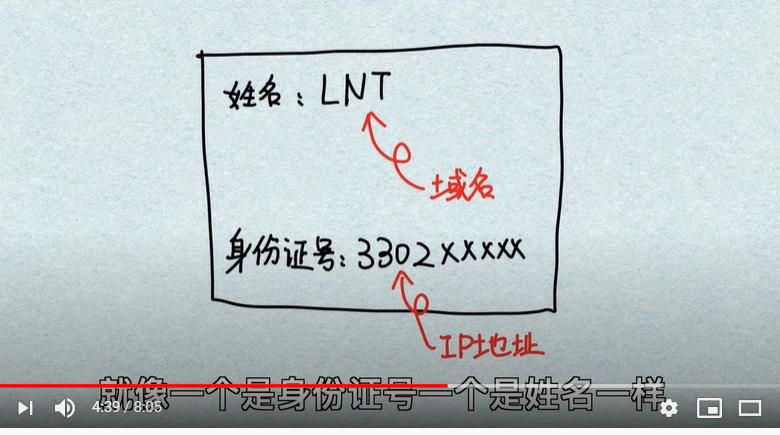 姓名：LNT
域名
身份证号：3302xxxxx
IP地址
就像一个是身份证号一个是姓名一样
4:39 / 8:05